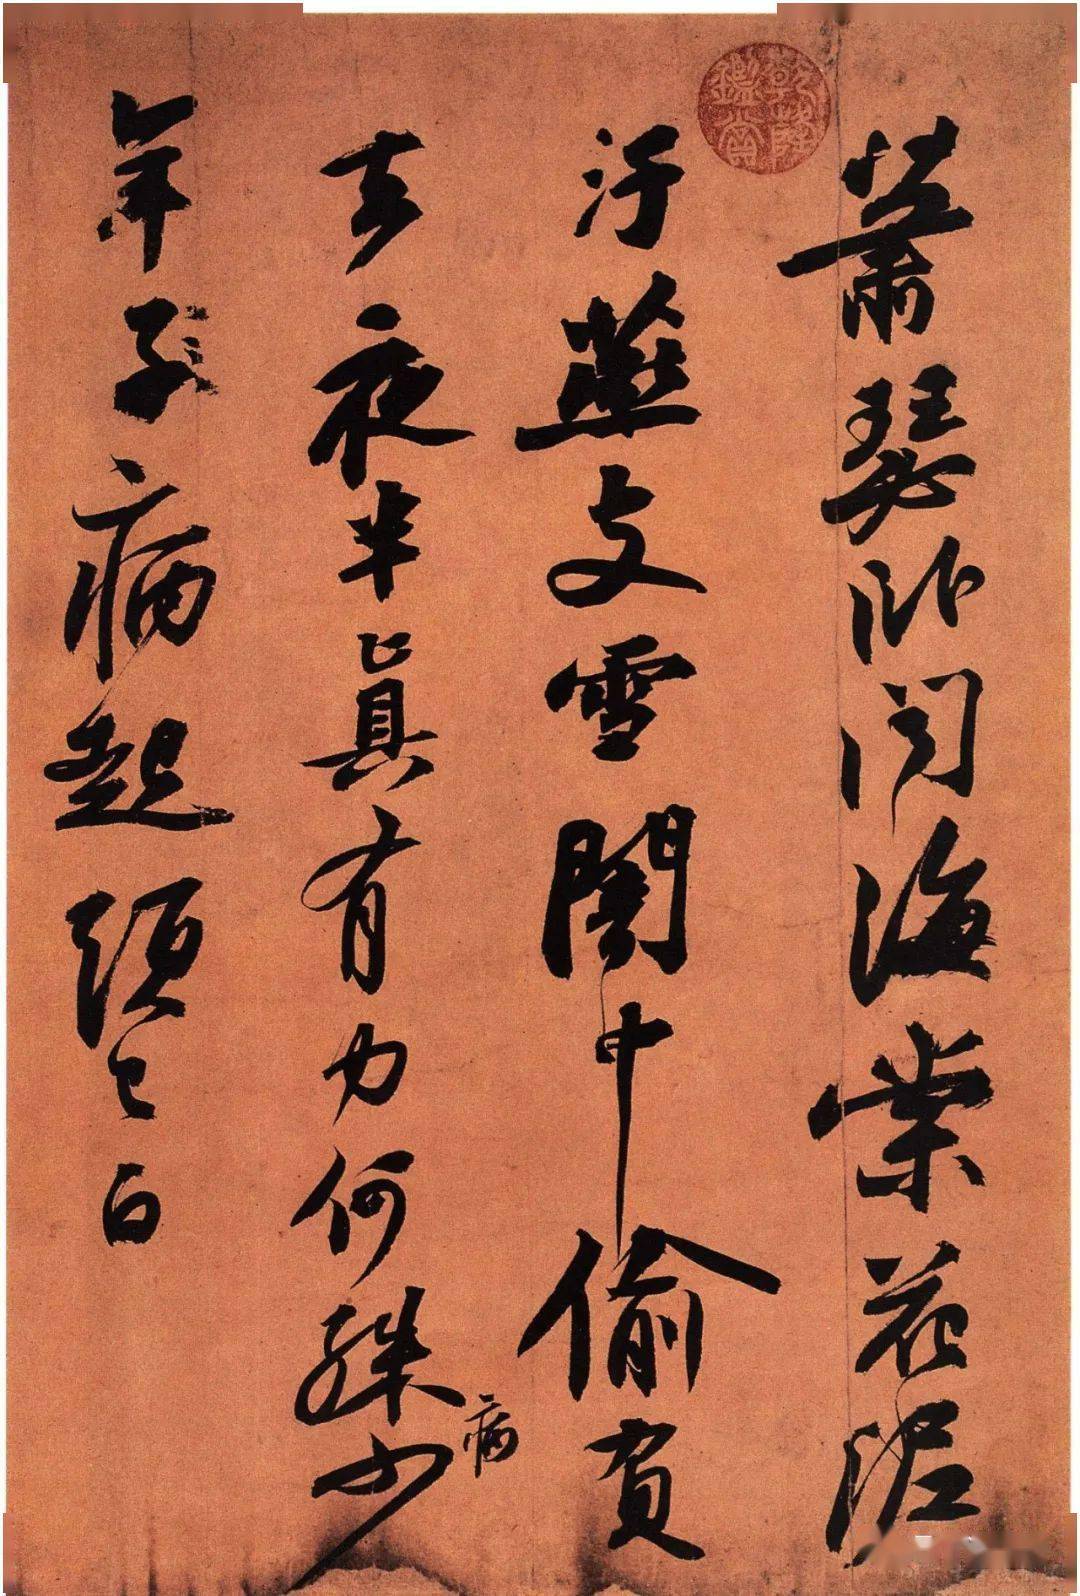 蕭瑟卧聞海棠花泥
汙燕支雪闇中偷負
去夜半真有力何殊少
年子病起頭已白
病
乾隆鑑賞